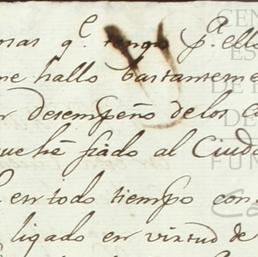 mas q.e tengo p.a ello
me hallo bastanteme
r desempeño de los C
que hé fiado al Ciuda
l en todo tiempo con
ligado en virtud de
CEN
ES
DE
DE
FUN